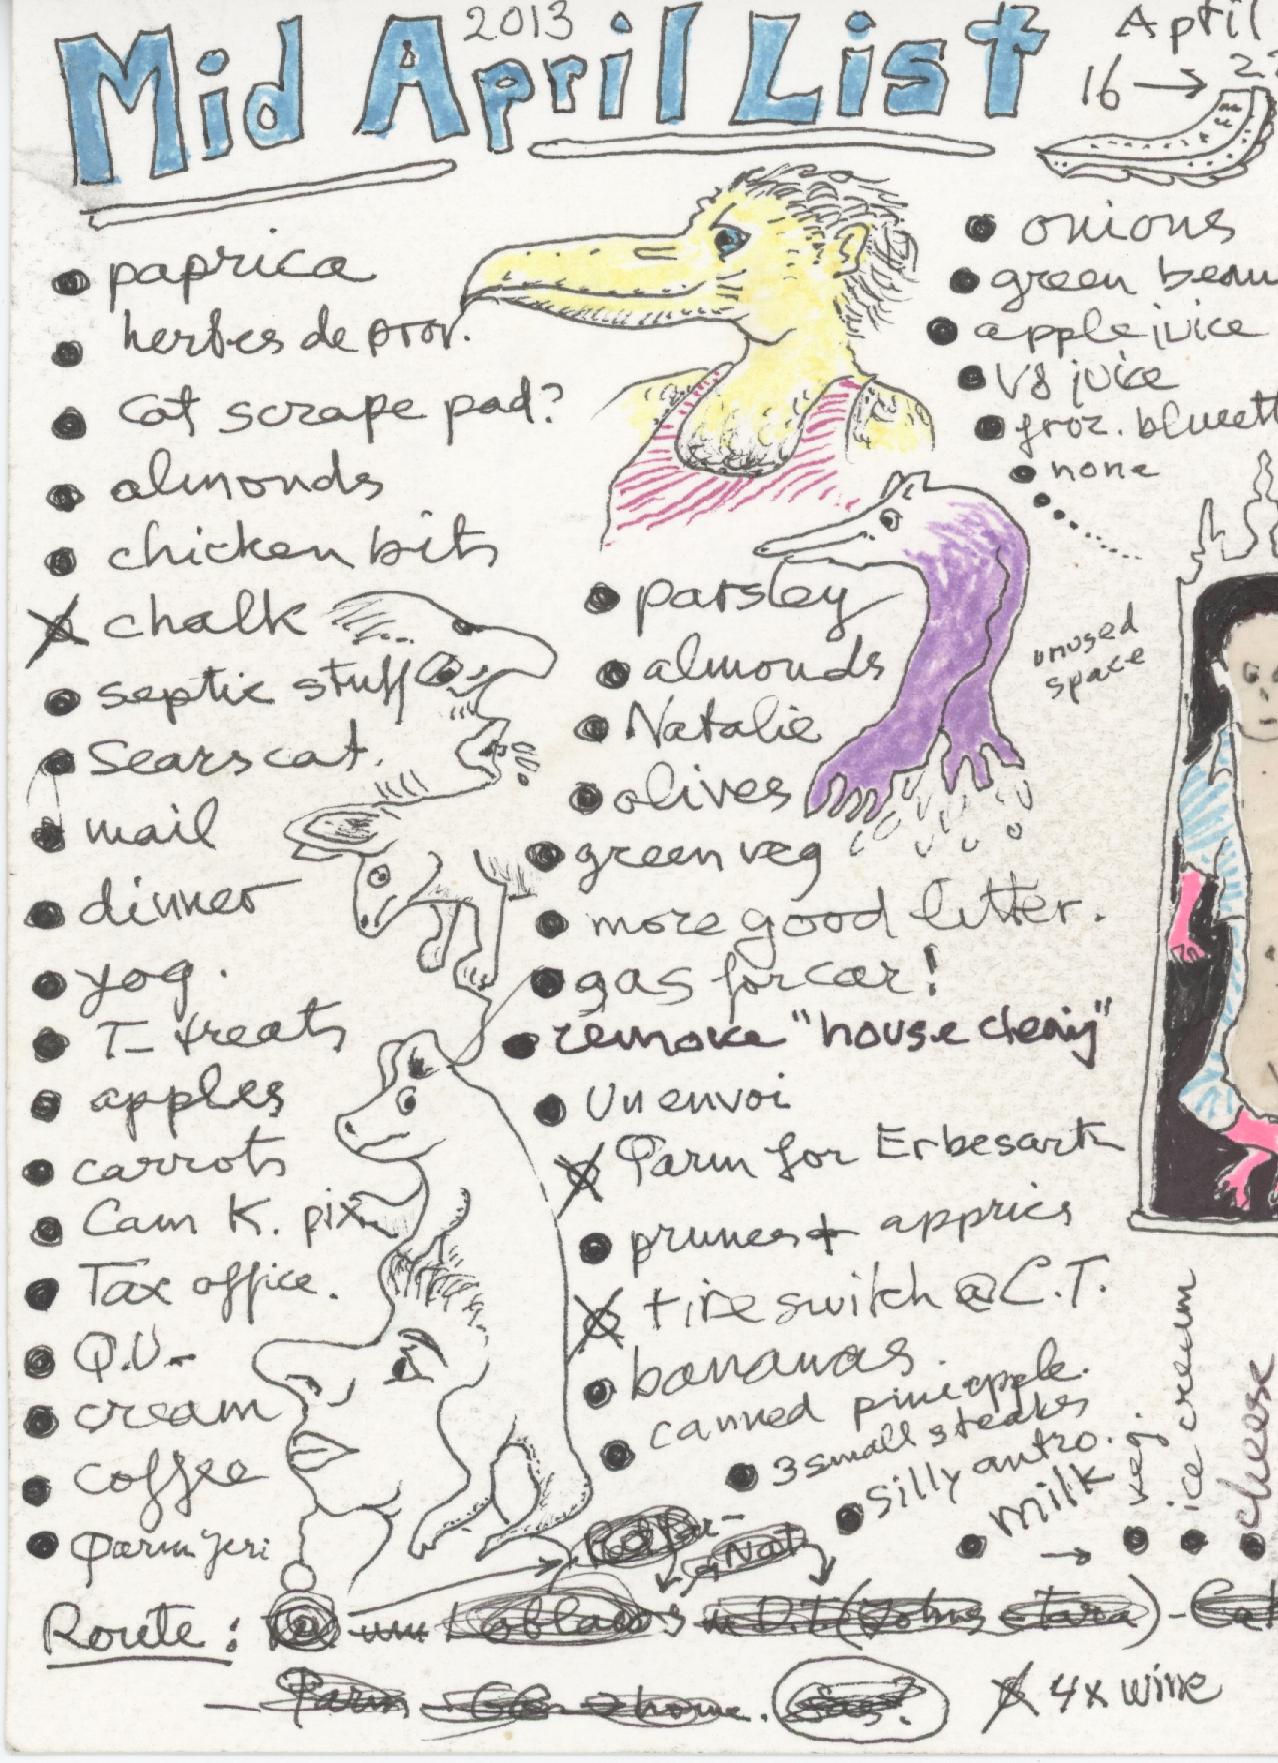 2013
Mid April List
April
16 →
paprica
herbes de prov.
cat scrape pad?
almonds
chicken bits
chalk
septic stuff
Sears cat.
mail
dinner
yog.
T- treats
apples
carrots
Cam K. pix
Tax office.
Q.V.
cream
coffee
onions
green
apple juice
V8 juice
froz.
none
unused
space
parsley
almonds
Natalie
olives
green veg
more good litter.
gas for car!
remove "house
Un envoi
Parm for
prunes +
tire switch @ C.T.
bananas.
canned
3 small steaks
silly antro.
milk
→
veg.
ice cream
cheese
Route:
home.
4x wine